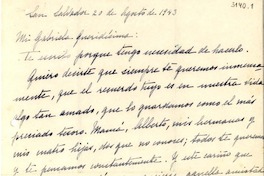 3140.1
San Salvador 20 de Agosto de 1943
Mi Gabriela queridísima:
Te escribo porque tengo necesidad de hacerlo.
Quiero decirte que siempre te queremos inmensa
mente, que el recuerdo tuyo es en nuestra vida
algo tan amado, que lo guardamos como el más
preciado tesoro. Mamá, Alberto, mis hermanas y
mis cuatro hijos, que no conoces; todos te queremos
y te pensamos constantemente. Y este cariño que
aquella